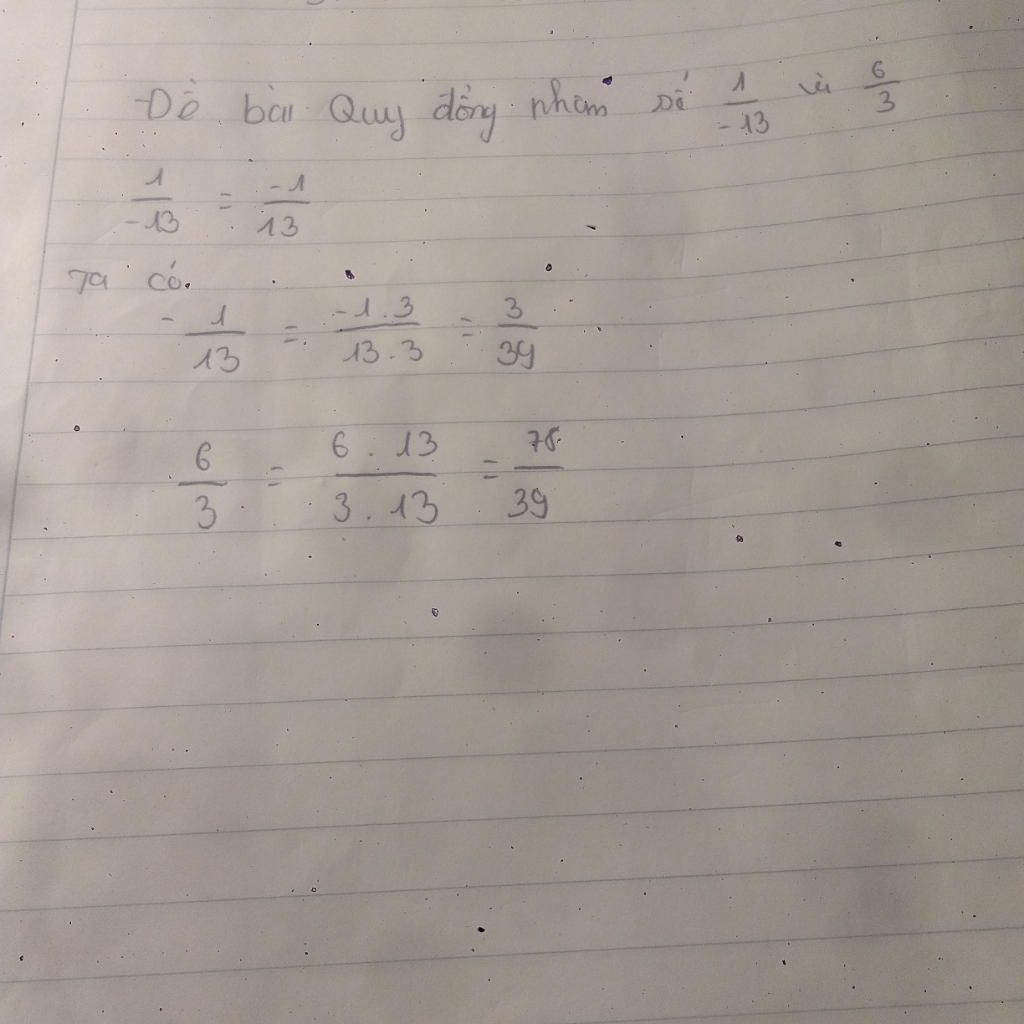 Đề bài Quy đồng phân số 1/-13 và 6/3
1/-13 = -1/13
Ta có.
-1/13 = -1.3/13.3 = 3/39
6/3 = 6.13/3.13 = 78/39